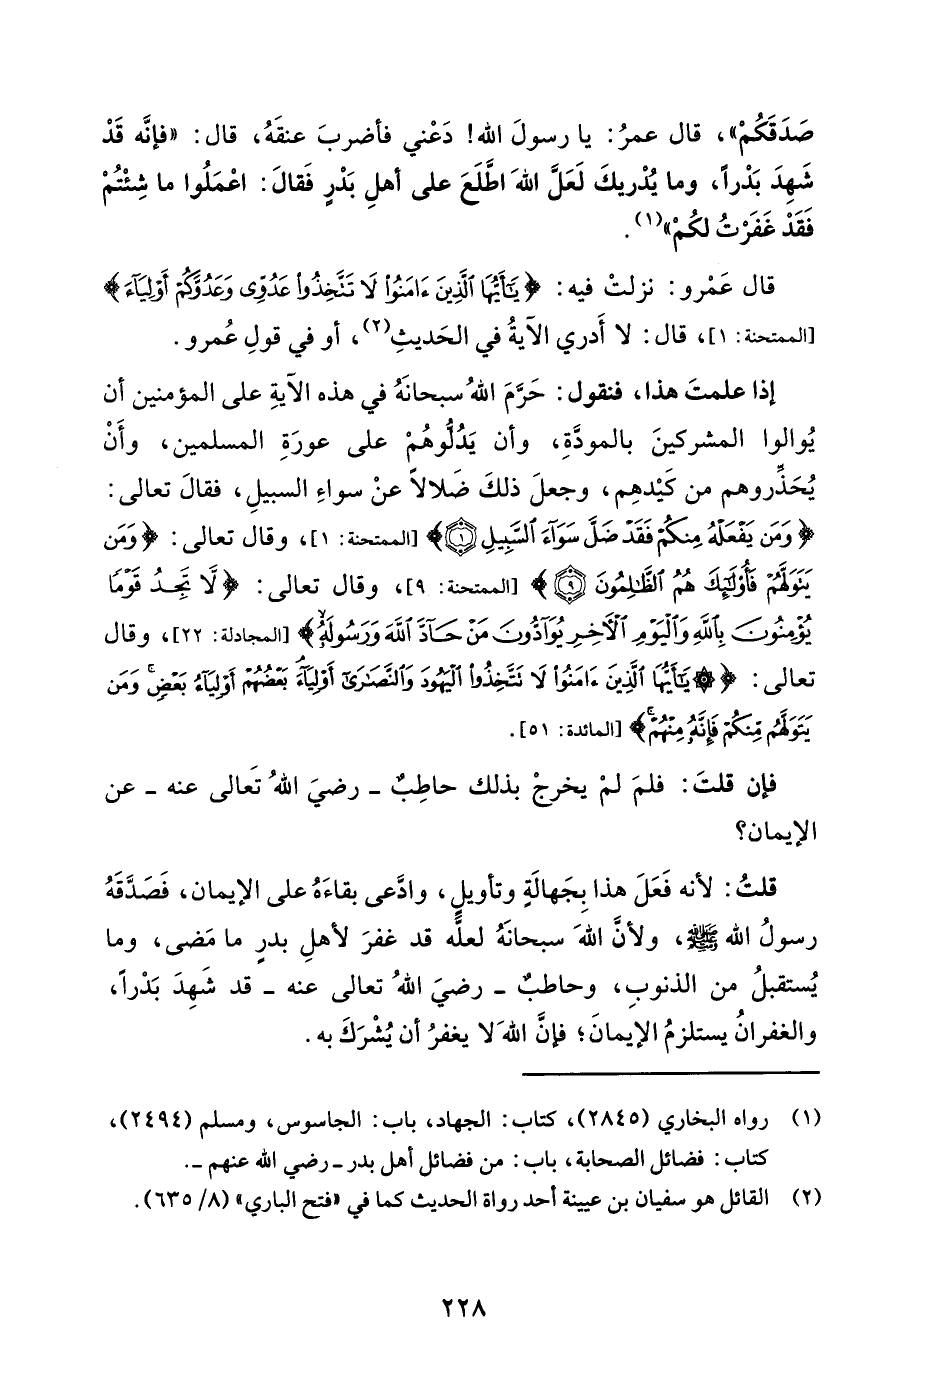 صَدَقَكُمْ»، قال عمرُ: يا رسولَ الله! دَعْني فأضربَ عنقَهُ، قال: «فإنَّه قَدْ
شَهِدَ بَدْراً، وما يُدْريكَ لَعَلَّ اللهَ اطَّلَعَ على أهلِ بَدْرٍ فَقالَ: اعْمَلُوا ما شِئْتُمْ
فَقَدْ غَفَرْتُ لكُمْ»(١).
قال عَمْرو: نزلتْ فيه: ﴿يَٰٓأَيُّهَا ٱلَّذِينَ ءَامَنُوا۟ لَا تَتَّخِذُوا۟ عَدُوِّى وَعَدُوَّكُمْ أَوْلِيَآءَ﴾
[الممتحنة: ١]، قال: لا أَدري الآيةُ في الحَديثِ(٢)، أو في قولِ عُمرو.
إذا علمتَ هذا، فنقول: حَرَّمَ اللهُ سبحانَهُ في هذه الآيةِ على المؤمنين أن
يُوالوا المشركينَ بالمودَّةِ، وأن يَدُلُّوهُمْ على عورَةِ المسلمين، وأَنْ
يُحَذِّروهم من كَيْدِهِم، وجعلَ ذلكَ ضَلالاً عنْ سواءِ السبيلِ، فقالَ تعالى:
﴿وَمَن يَفْعَلْهُ مِنكُمْ فَقَدْ ضَلَّ سَوَآءَ ٱلسَّبِيلِ ۝١﴾ [الممتحنة: ١]، وقال تعالى: ﴿وَمَن
يَتَوَلَّهُمْ فَأُو۟لَٰٓئِكَ هُمُ ٱلظَّٰلِمُونَ ۝٩﴾ [الممتحنة: ٩]، وقال تعالى: ﴿لَّا تَجِدُ قَوْمًا
يُؤْمِنُونَ بِٱللَّهِ وَٱلْيَوْمِ ٱلْءَاخِرِ يُوَآدُّونَ مَنْ حَآدَّ ٱللَّهَ وَرَسُولَهُۥ﴾ [المجادلة: ٢٢]، وقال
تعالى: ﴿۞ يَٰٓأَيُّهَا ٱلَّذِينَ ءَامَنُوا۟ لَا تَتَّخِذُوا۟ ٱلْيَهُودَ وَٱلنَّصَٰرَىٰٓ أَوْلِيَآءَ ۘ بَعْضُهُمْ أَوْلِيَآءُ بَعْضٍ ۚ وَمَن
يَتَوَلَّهُم مِّنكُمْ فَإِنَّهُۥ مِنْهُمْ ۗ﴾ [المائدة: ٥١].
فإن قلتَ: فلمَ لمْ يخرجْ بذلك حاطِبٌ ـ رضيَ اللهُ تَعالى عنه ـ عن
الإيمان؟
قلتُ: لأنه فَعَلَ هذا بِجَهالَةٍ وتأويلٍ، وادَّعى بقاءَهُ على الإيمان، فَصَدَّقَهُ
رسولُ الله ﷺ، ولأنَّ اللهَ سبحانَهُ لعلَّه قد غفرَ لأهلِ بدرٍ ما مَضى، وما
يُستقبلُ من الذنوبِ، وحاطبٌ ـ رضيَ اللهُ تعالى عنه ـ قد شَهِدَ بَدْراً،
والغفرانُ يستلزمُ الإيمانَ؛ فإنَّ اللهَ لا يغفرُ أن يُشْرَكَ به.
(١) رواه البخاري (٢٨٤٥)، كتاب: الجهاد، باب: الجاسوس، ومسلم (٢٤٩٤)،
كتاب: فضائل الصحابة، باب: من فضائل أهل بدر ـ رضي الله عنهم ـ.
(٢) القائل هو سفيان بن عيينة أحد رواة الحديث كما في «فتح الباري» (٨/ ٦٣٥).
٢٢٨